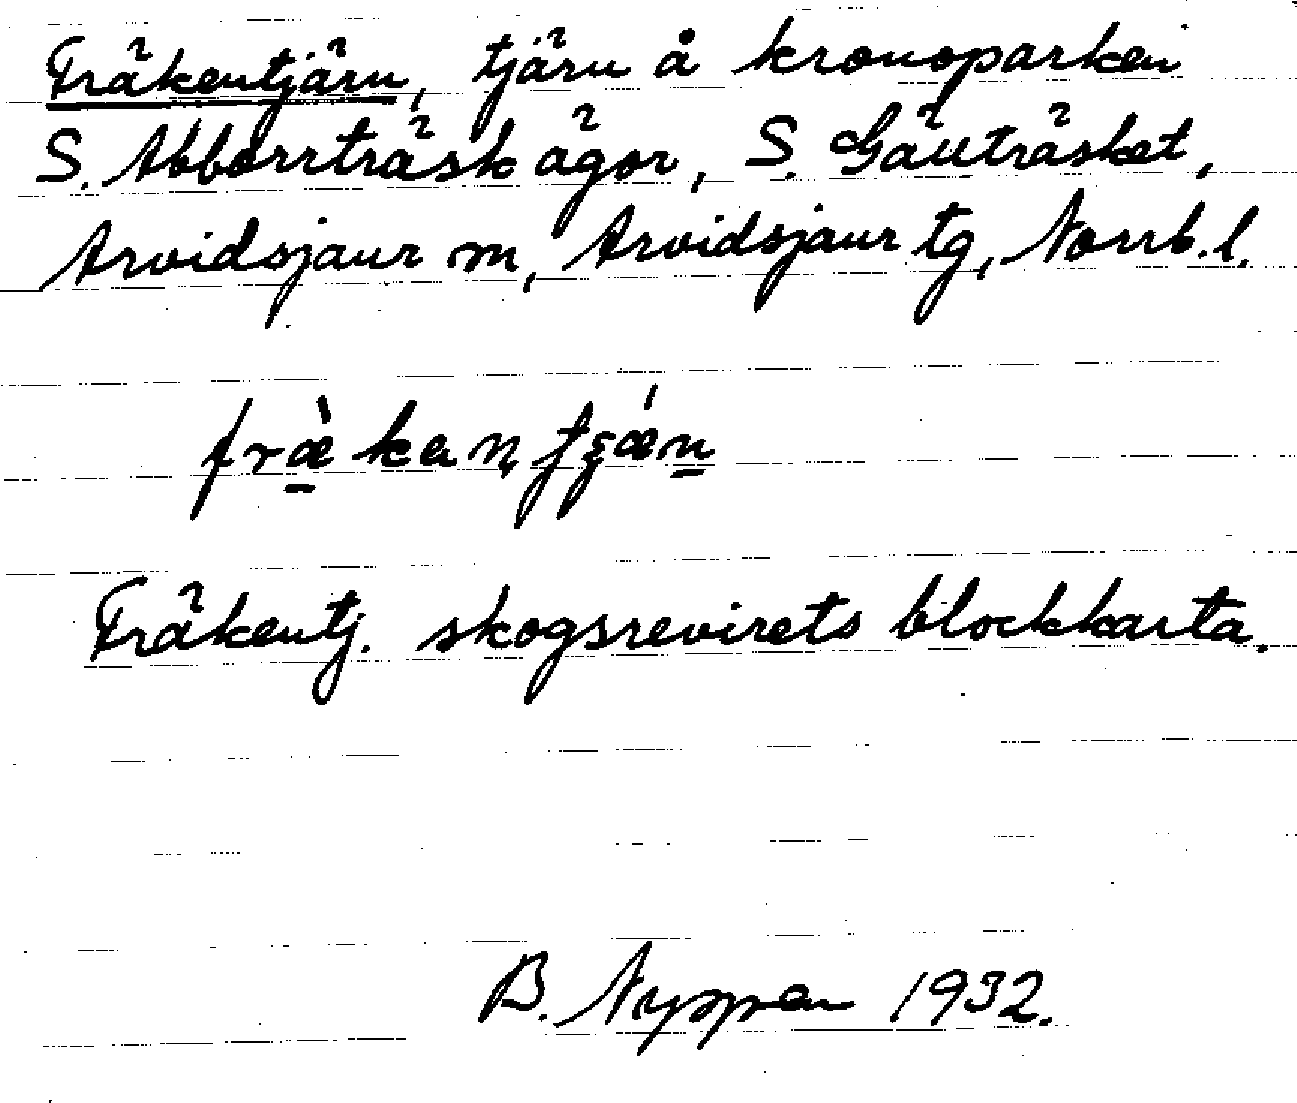 Fräkentjärn, tjärn å kronoparken
S. Abborrträsk ägor, S. Gäuträsket,
Arvidsjaur m, Arvidsjaur tg, Norrb. l.
Fräkentj. skogsrevirets blockkarta.
B. Nyppen 1932.